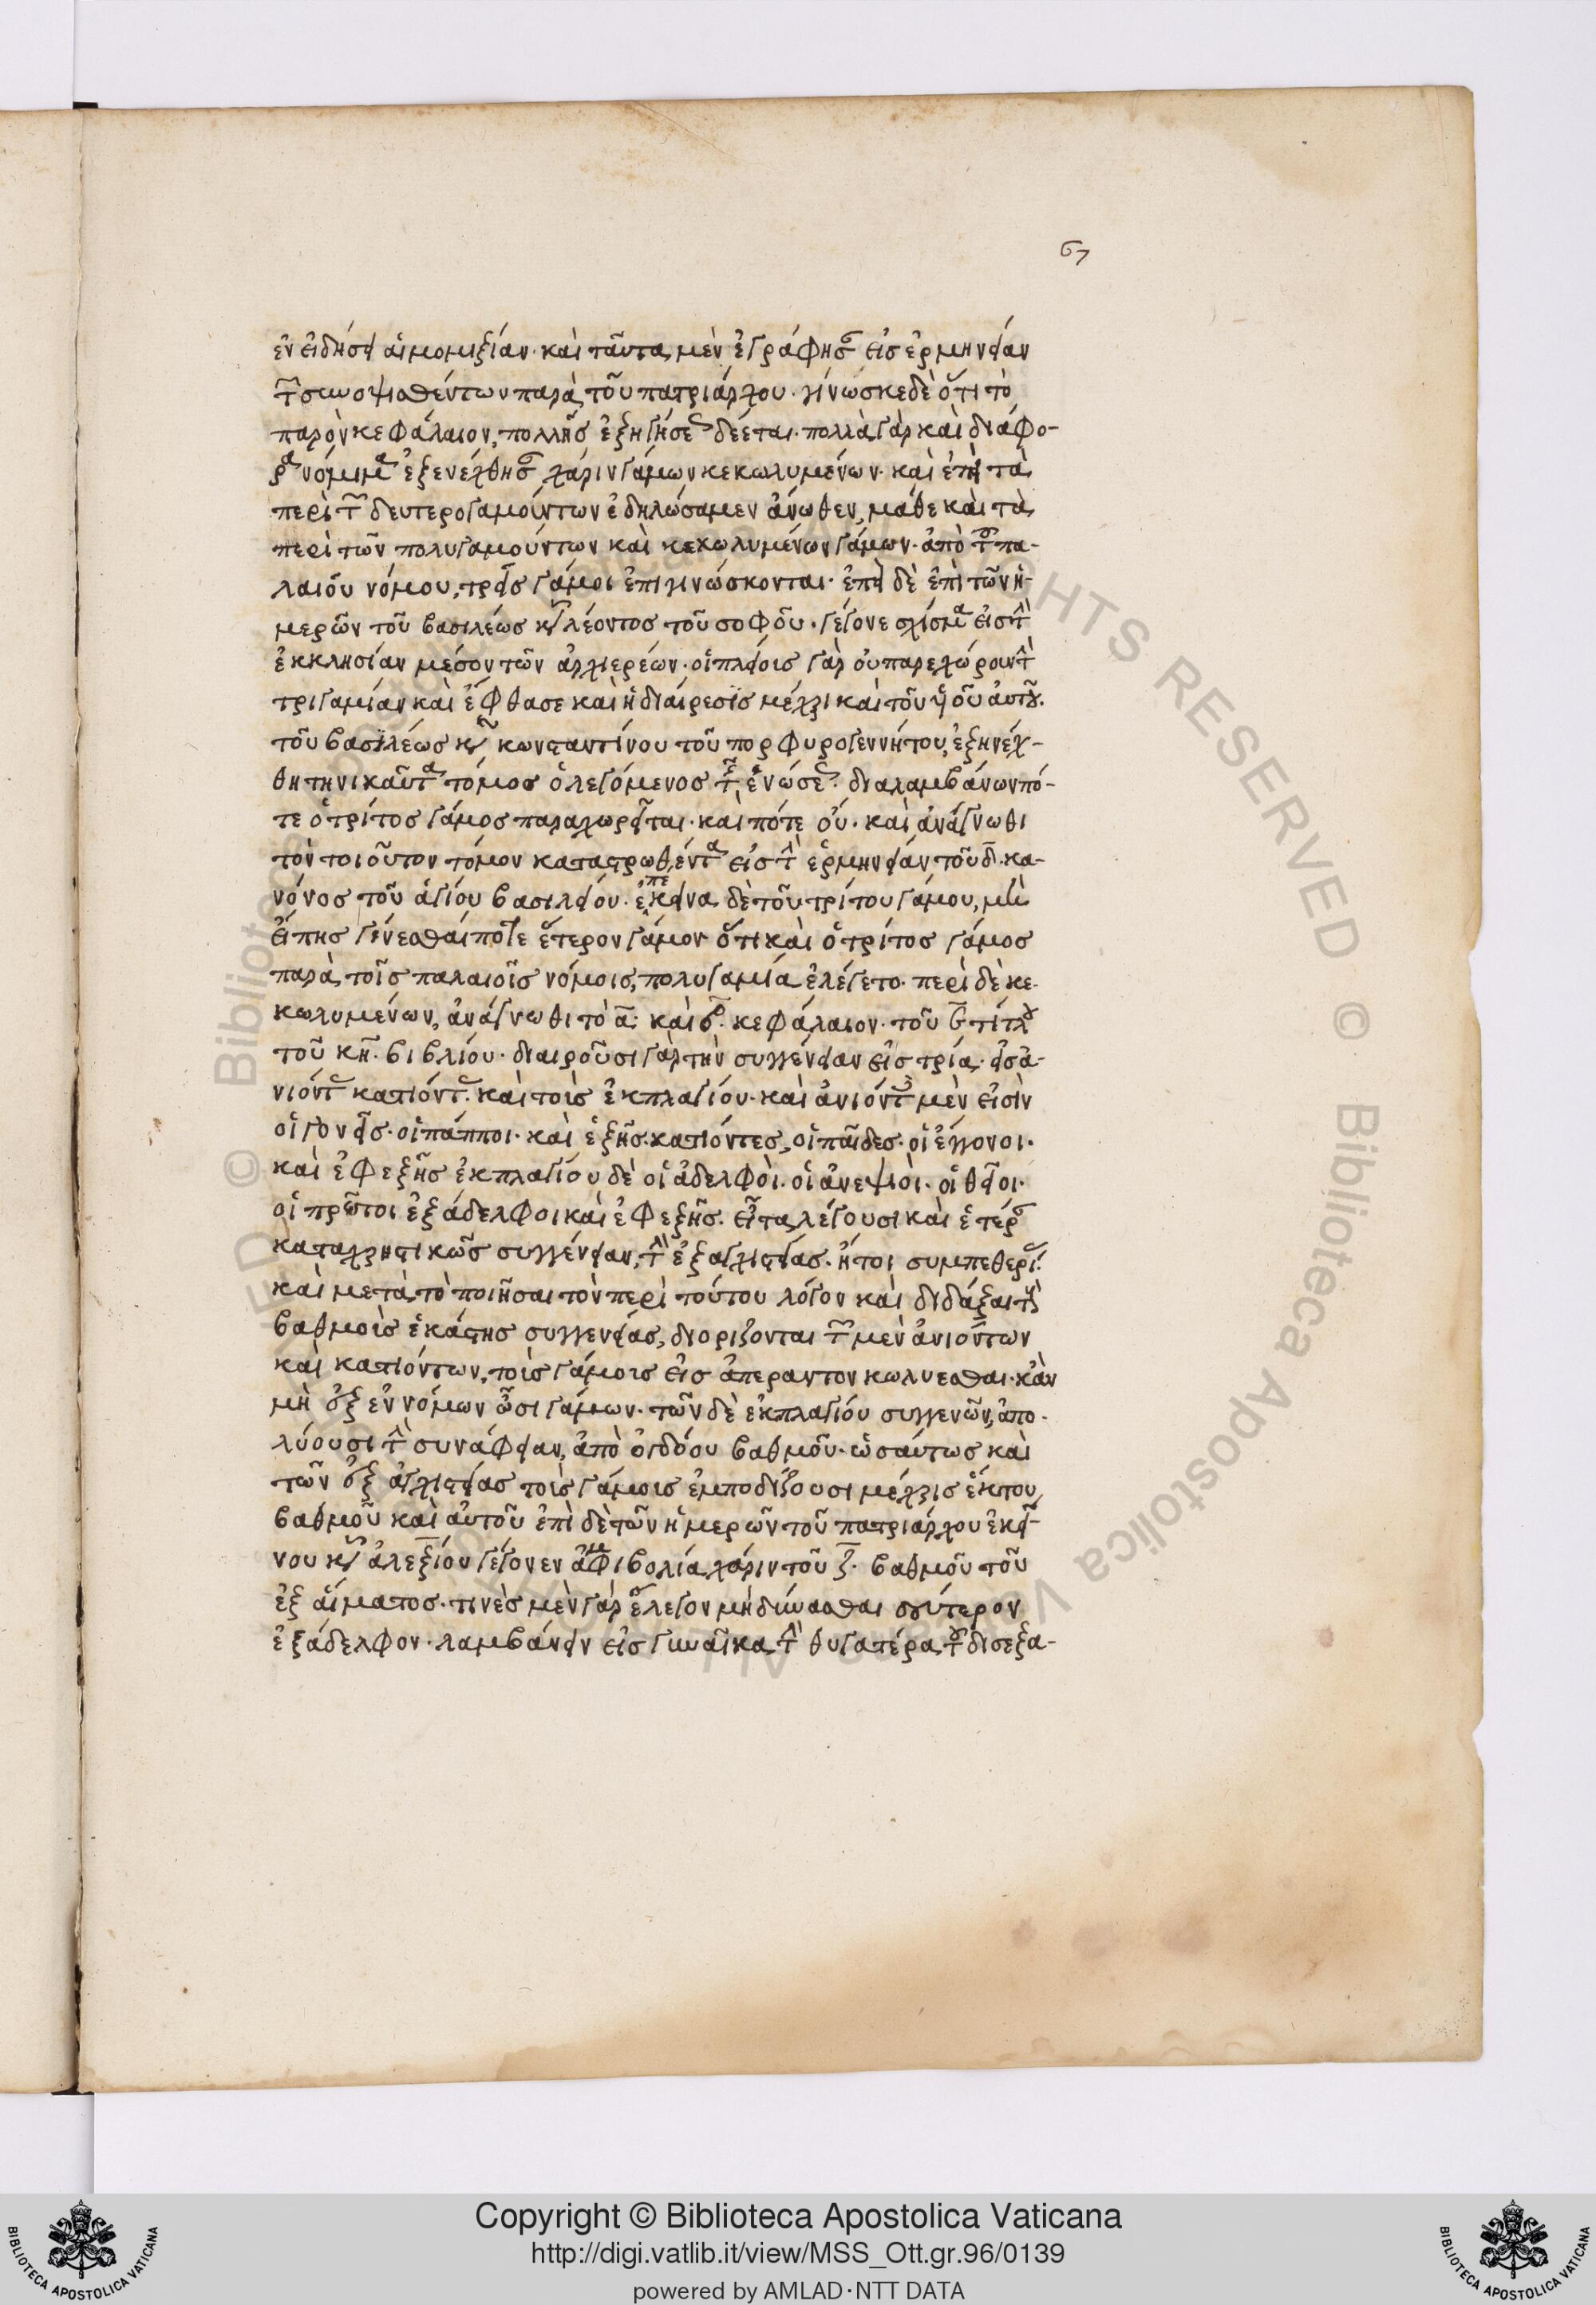 67
ἐν εἰδήσει αἱμομιξίαν· καὶ ταῦτα μὲν ἐγράφησαν εἰς ἑρμηνείαν
τῶν συνοψισθέντων παρὰ τοῦ πατριάρχου· γίνωσκε δὲ ὅτι τὸ
παρὸν κεφάλαιον, πολλῆς ἐξηγήσεως δέεται· πολλὰ γὰρ καὶ διάφο-
ρα νόμιμα ἐξενέχθησαν χάριν γάμων κεκωλυμένων· καὶ ἐπεὶ τὰ
περὶ τῶν δευτερογαμούντων ἐδηλώσαμεν ἄνωθεν, μάθε καὶ τὰ
περὶ τῶν πολυγαμούντων καὶ κεκωλυμένων γάμων· ἀπὸ τοῦ πα-
λαιοῦ νόμου, τρεῖς γάμοι ἐπιγινώσκονται· ἐπεὶ δὲ ἐπὶ τῶν ἡ-
μερῶν τοῦ βασιλέως κυροῦ λέοντος τοῦ σοφοῦ· γέγονε σχίσμα εἰς τὴν
ἐκκλησίαν μέσον τῶν ἀρχιερέων· οἱ πλείοις γὰρ οὐ παρεχώρουν τὴν
τριγαμίαν καὶ ἔφθασε καὶ ἡ διαίρεσις μέχρι καὶ τοῦ υἱοῦ αὐτοῦ·
τοῦ βασιλέως κυροῦ κωνσταντίνου τοῦ πορφυρογεννήτου, ἐξηνέχ-
θη τηνικαῦτα τόμος ὁ λεγόμενος τῆς ἑνώσεως· διαλαμβάνων πό-
τε ὁ τρίτος γάμος παραχωρεῖται· καὶ πότε οὐ· καὶ ἀνάγνωθι
τὸν τοιοῦτον τόμον καταστρωθέντα εἰς τὴν ἑρμηνείαν τοῦ δ̅· κα-
νόνος τοῦ ἁγίου βασιλείου· ἐπέκεινα δὲ τοῦ τρίτου γάμου, μὴ
εἴπῃς γίνεσθαι ποτὲ ἕτερον γάμον ὅτι καὶ ὁ τρίτος γάμος
παρὰ τοῖς παλαιοῖς νόμοις, πολυγαμία ἐλέγετο· περὶ δὲ κε-
κωλυμένων, ἀνάγνωθι τὸ α̅· καὶ β̅· κεφάλαιον· τοῦ ϛ̅ τίτλου
τοῦ κη̅· βιβλίου· διαιροῦσι γὰρ τὴν συγγένειαν εἰς τρία· εἰς ἀ-
νιόντας κατιόντας· καὶ τοῖς ἐκ πλαγίου· καὶ ἀνιόντες μὲν εἰσὶν
οἱ γονεῖς· οἱ πάπποι· καὶ ἑξῆς· κατιόντες, οἱ παῖδες· οἱ ἔγγονοι·
καὶ ἐφεξῆς ἐκ πλαγίου δὲ οἱ ἀδελφοὶ· οἱ ἀνεψιοὶ· οἱ θεῖοι·
οἱ πρῶτοι ἐξάδελφοι καὶ ἐφεξῆς· εἶτα λέγουσι καὶ ἑτέραν
καταχρηστικῶς συγγένειαν, τὴν ἐξ ἀγχιστείας· ἤτοι συμπεθερίας·
καὶ μετὰ τὸ ποιῆσαι τὸν περὶ τούτου λόγον καὶ διδάξαι τοὺς
βαθμοὺς ἑκάστης συγγενείας, διορίζονται τῶν μὲν ἀνιόντων
καὶ κατιόντων, τοῖς γάμοις εἰς ἀπέραντον κωλύεσθαι· κἂν
μὴ ἐξ ἐννόμων ὦσι γάμων· τῶν δὲ ἐκ πλαγίου συγγενῶν, ἀπο-
λύουσι τὴν συνάφειαν, ἀπὸ ὀγδόου βαθμοῦ· ὡσαύτως καὶ
τῶν ἐξ ἀγχιστείας τοῖς γάμοις ἐμποδίζουσι μέχρις ἕκτου
βαθμοῦ καὶ αὐτοῦ ἐπὶ δὲ τῶν ἡμερῶν τοῦ πατριάρχου ἐκεί-
νου κυροῦ ἀλεξίου γέγονεν ἀμφιβολία χάριν τοῦ ζ̅· βαθμοῦ τοῦ
ἐξ αἵματος· τινὲς μὲν γὰρ ἔλεγον μὴ δύνασθαι δεύτερον
ἐξάδελφον· λαμβάνειν εἰς γυναῖκα τὴν θυγατέρα τοῦ δισεξα-
Copyright © Biblioteca Apostolica Vaticana
http://digi.vatlib.it/view/MSS_Ott.gr.96/0139
powered by AMLAD·NTT DATA
BIBLIOTECA APOSTOLICA VATICANA
BIBLIOTECA APOSTOLICA VATICANA